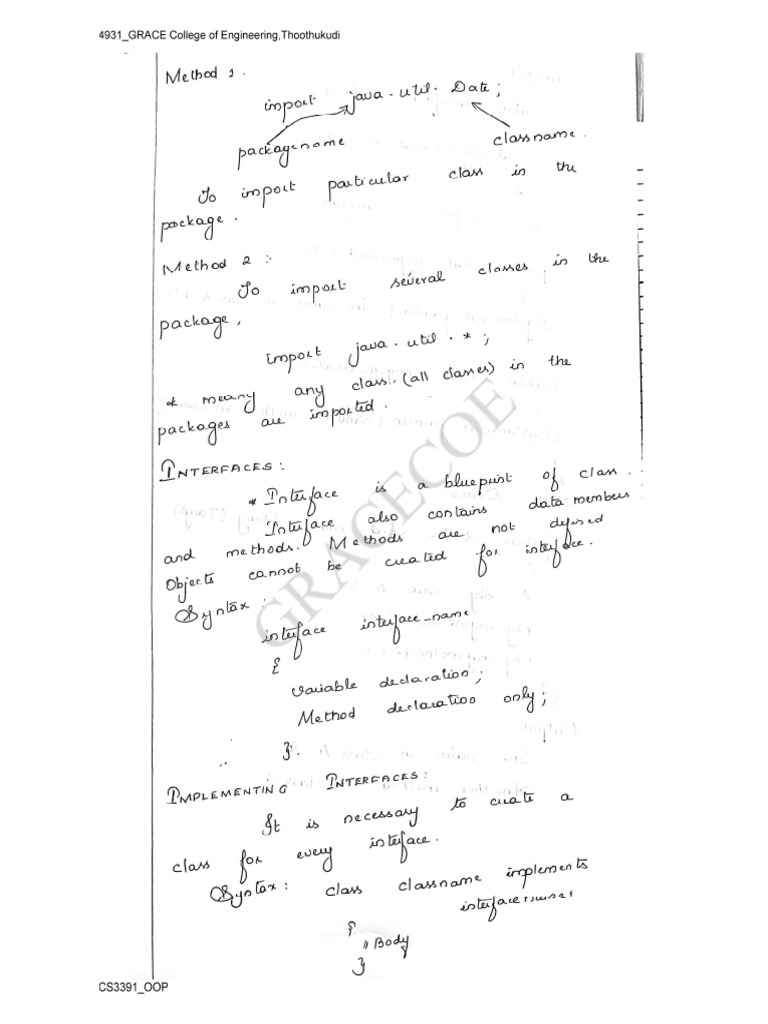 4931_GRACE College of Engineering,Thoothukudi
Method 1.
import java.util.Date;
packagename classname.
To import particular class in the
package.
Method 2 :-
To import several classes in the
package,
import java.util.*;
* meany any class.(all classes) in the
packages are imported.
INTERFACES:
* Interface is a blueprint of class.
Interface also contains data members
and methods. Methods are not defined
Objects cannot be created for interface.
Syntax:
interface interface_name
{
Variable declaration;
Method declaration only;
}.
IMPLEMENTING INTERFACES:
It is necessary to create a
class for every interface.
Syntax: class classname implements
{
"Body
}
GRACECOE
CS3391_OOP